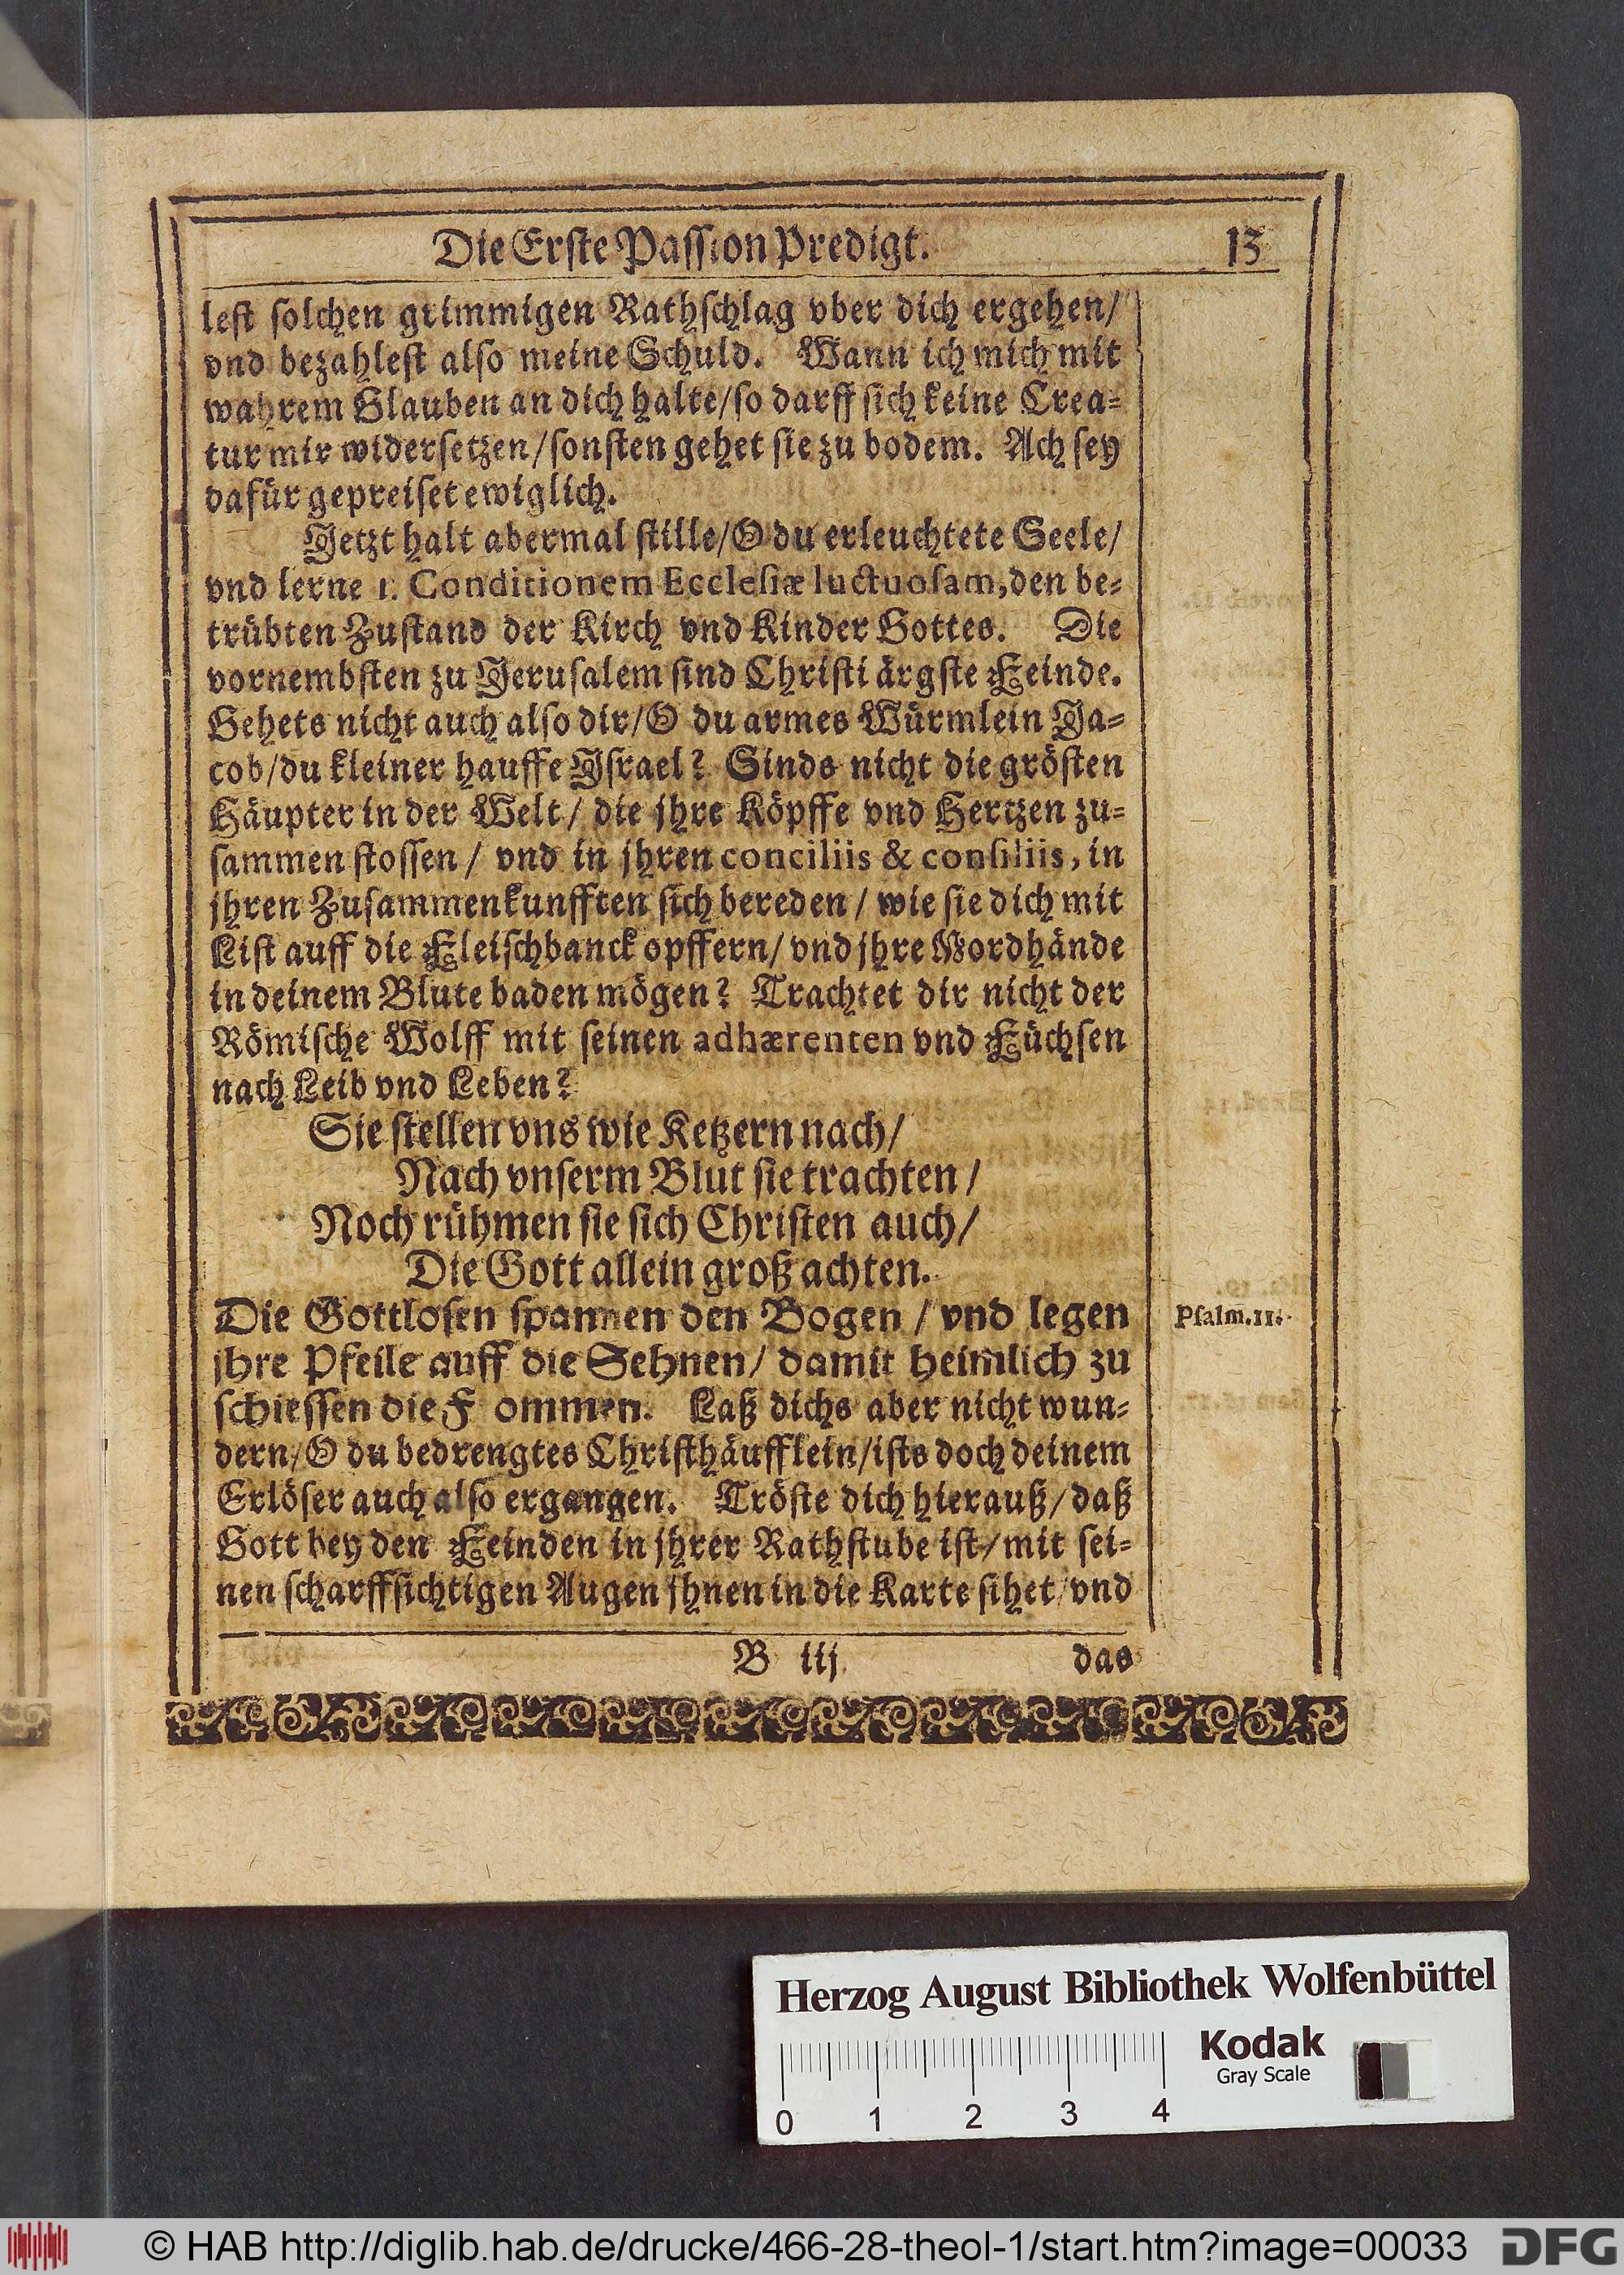 Die Erste Passion Predigt. 13
lest solchen grimmigen Rathschlag vber dich ergehen/
vnd bezahlest also meine Schuld. Wann ich mich mit
wahrem Glauben an dich halte/so darff sich keine Crea-
tur mir widersetzen/sonsten gehet sie zu bodem. Ach sey
dafür gepreiset ewiglich.
Jetzt halt abermal stille/O du erleuchtete Seele/
vnd lerne 1. Conditionem Ecclesiæ luctuosam,den be-
trübten Zustand der Kirch vnd Kinder Gottes. Die
vornembsten zu Jerusalem sind Christi ärgste Feinde.
Gehets nicht auch also dir/O du armes Würmlein Ja-
cob/du kleiner hauffe Jsrael? Sinds nicht die grösten
Häupter in der Welt/ die jhre Köpffe vnd Hertzen zu-
sammen stossen/ vnd in jhren conciliis & consiliis, in
jhren Zusammenkunfften sich bereden/ wie sie dich mit
List auff die Fleischbanck opffern/ vnd jhre Mordhände
in deinem Blute baden mögen? Trachtet dir nicht der
Römische Wolff mit seinen adhærenten vnd Füchsen
nach Leib vnd Leben?
Sie stellen vns wie Ketzern nach/
Nach vnserm Blut sie trachten/
Noch rühmen sie sich Christen auch/
Die Gott allein groß achten.
Die Gottlosen spannen den Bogen/ vnd legen Psalm.11.
jhre Pfeile auff die Sehnen/ damit heimlich zu
schiessen die F ommen. Laß dichs aber nicht wun-
dern/O du bedrengtes Christhäufflein/ists doch deinem
Erlöser auch also ergangen. Tröste dich hierauß/daß
Gott bey den Feinden in jhrer Rathstube ist/mit sei-
nen scharffsichtigen Augen jhnen in die Karte sihet/vnd
B iij das
Herzog August Bibliothek Wolfenbüttel
Kodak
Gray Scale
0 1 2 3 4
© HAB http://diglib.hab.de/drucke/466-28-theol-1/start.htm?image=00033 DFG